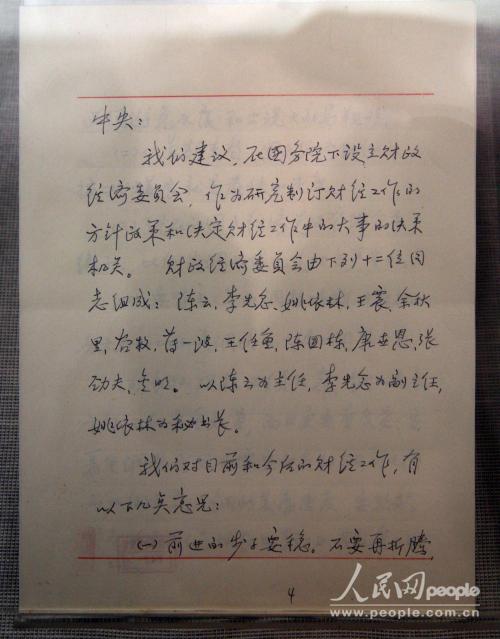 中央：
我们建议，在国务院下设立财政
经济委员会，作为研究制订财经工作的
方针政策和决定财经工作中的大事的决策
机关。财政经济委员会由下列十二位同
志组成：陈云，李先念，姚依林，王震，余秋
里，谷牧，薄一波，王任重，陈国栋，康世恩，张
劲夫，金明。以陈云为主任，李先念为副主任，
姚依林为秘书长。
我们对目前和今后的财经工作，有
以下几点意见：
(一)前进的步子要稳。不要再折腾，
4
人民网people
www.people.com.cn